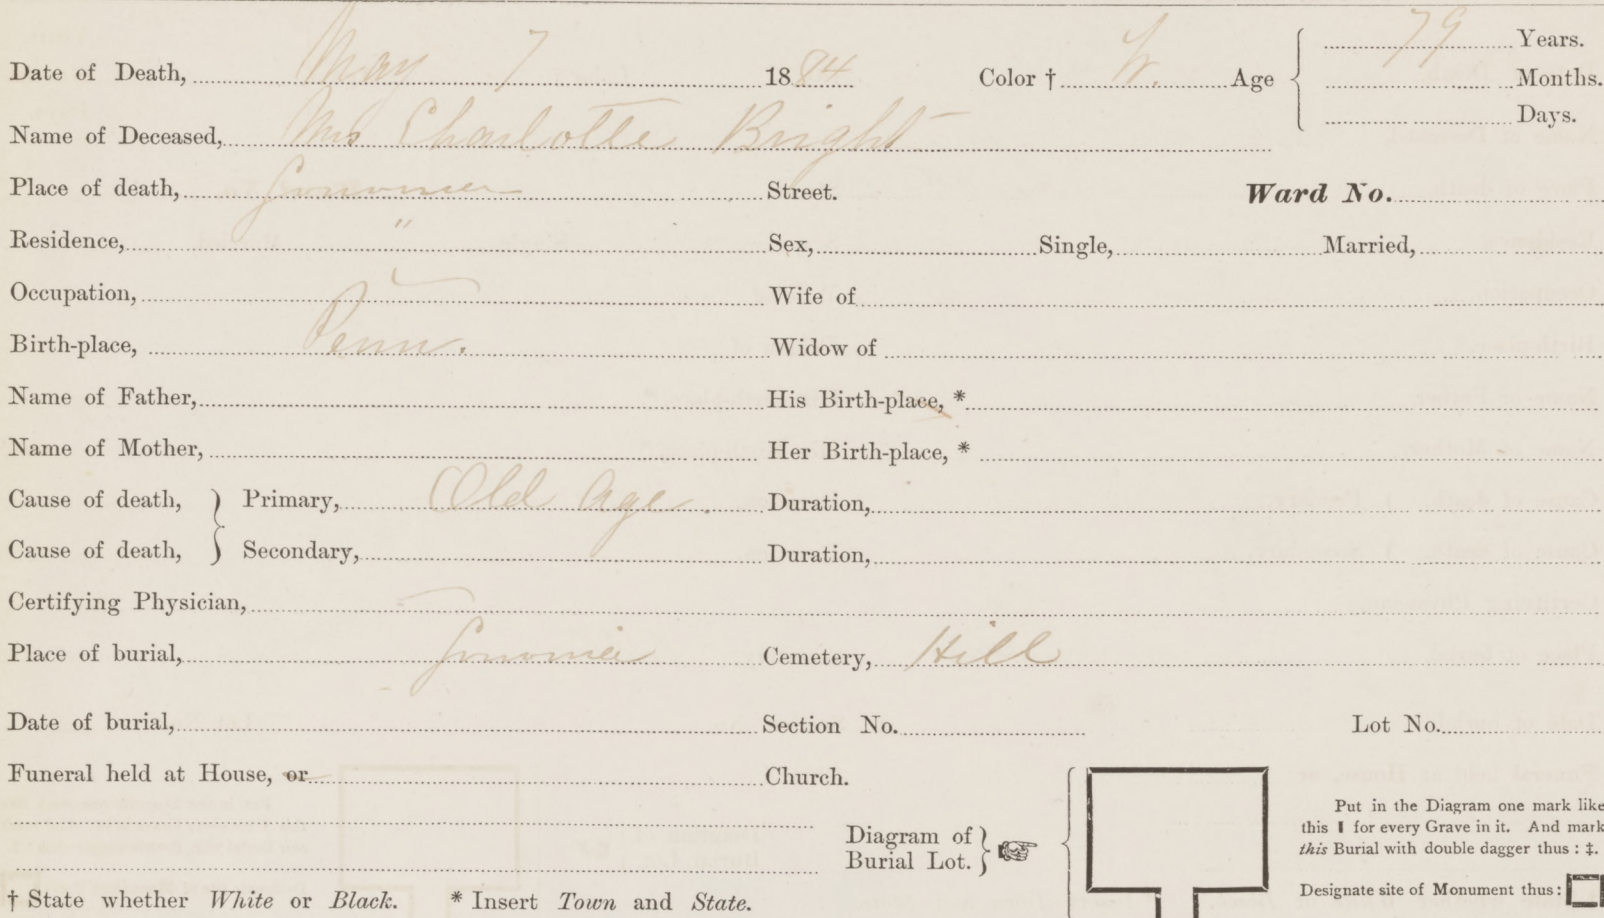 Date of Death, May 7 1884 Color † W. Age 79 Years.
Months.
Days.
Name of Deceased, Mrs Charlotte Bright
Place of death, Street. Ward No.
Residence, " Sex, Single, Married,
Occupation, Wife of
Birth-place, Penn. Widow of
Name of Father, His Birth-place, *
Name of Mother, Her Birth-place, *
Cause of death, } Primary, Old Age. Duration,
Cause of death, } Secondary, Duration,
Certifying Physician,
Place of burial, Cemetery, Hill
Date of burial, Section No. Lot No.
Funeral held at House, or Church.
Diagram of
Burial Lot. }
Put in the Diagram one mark like
this ❙ for every Grave in it. And mark
this Burial with double dagger thus : ‡.
Designate site of Monument thus :
† State whether White or Black. * Insert Town and State.